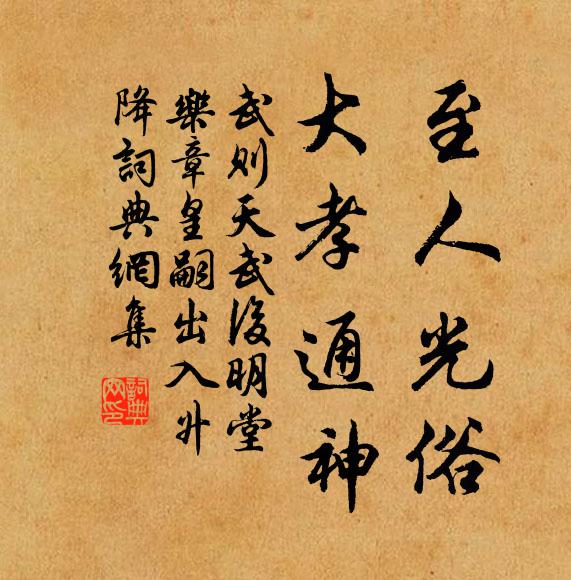 至人光俗
大孝通神
武則天武後明堂
樂章皇嗣出入升
降詞典網集
詞典網印